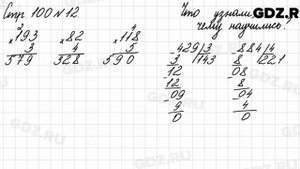 Стр 100 № 12.
Что узнали,
чему научились?
GDZ.R
×193
3
579
×82
4
328
×118
5
590
-429|3
3 |143
-12
12
-09
9
0
884|4
8 |221
-08
8
-04
4
0